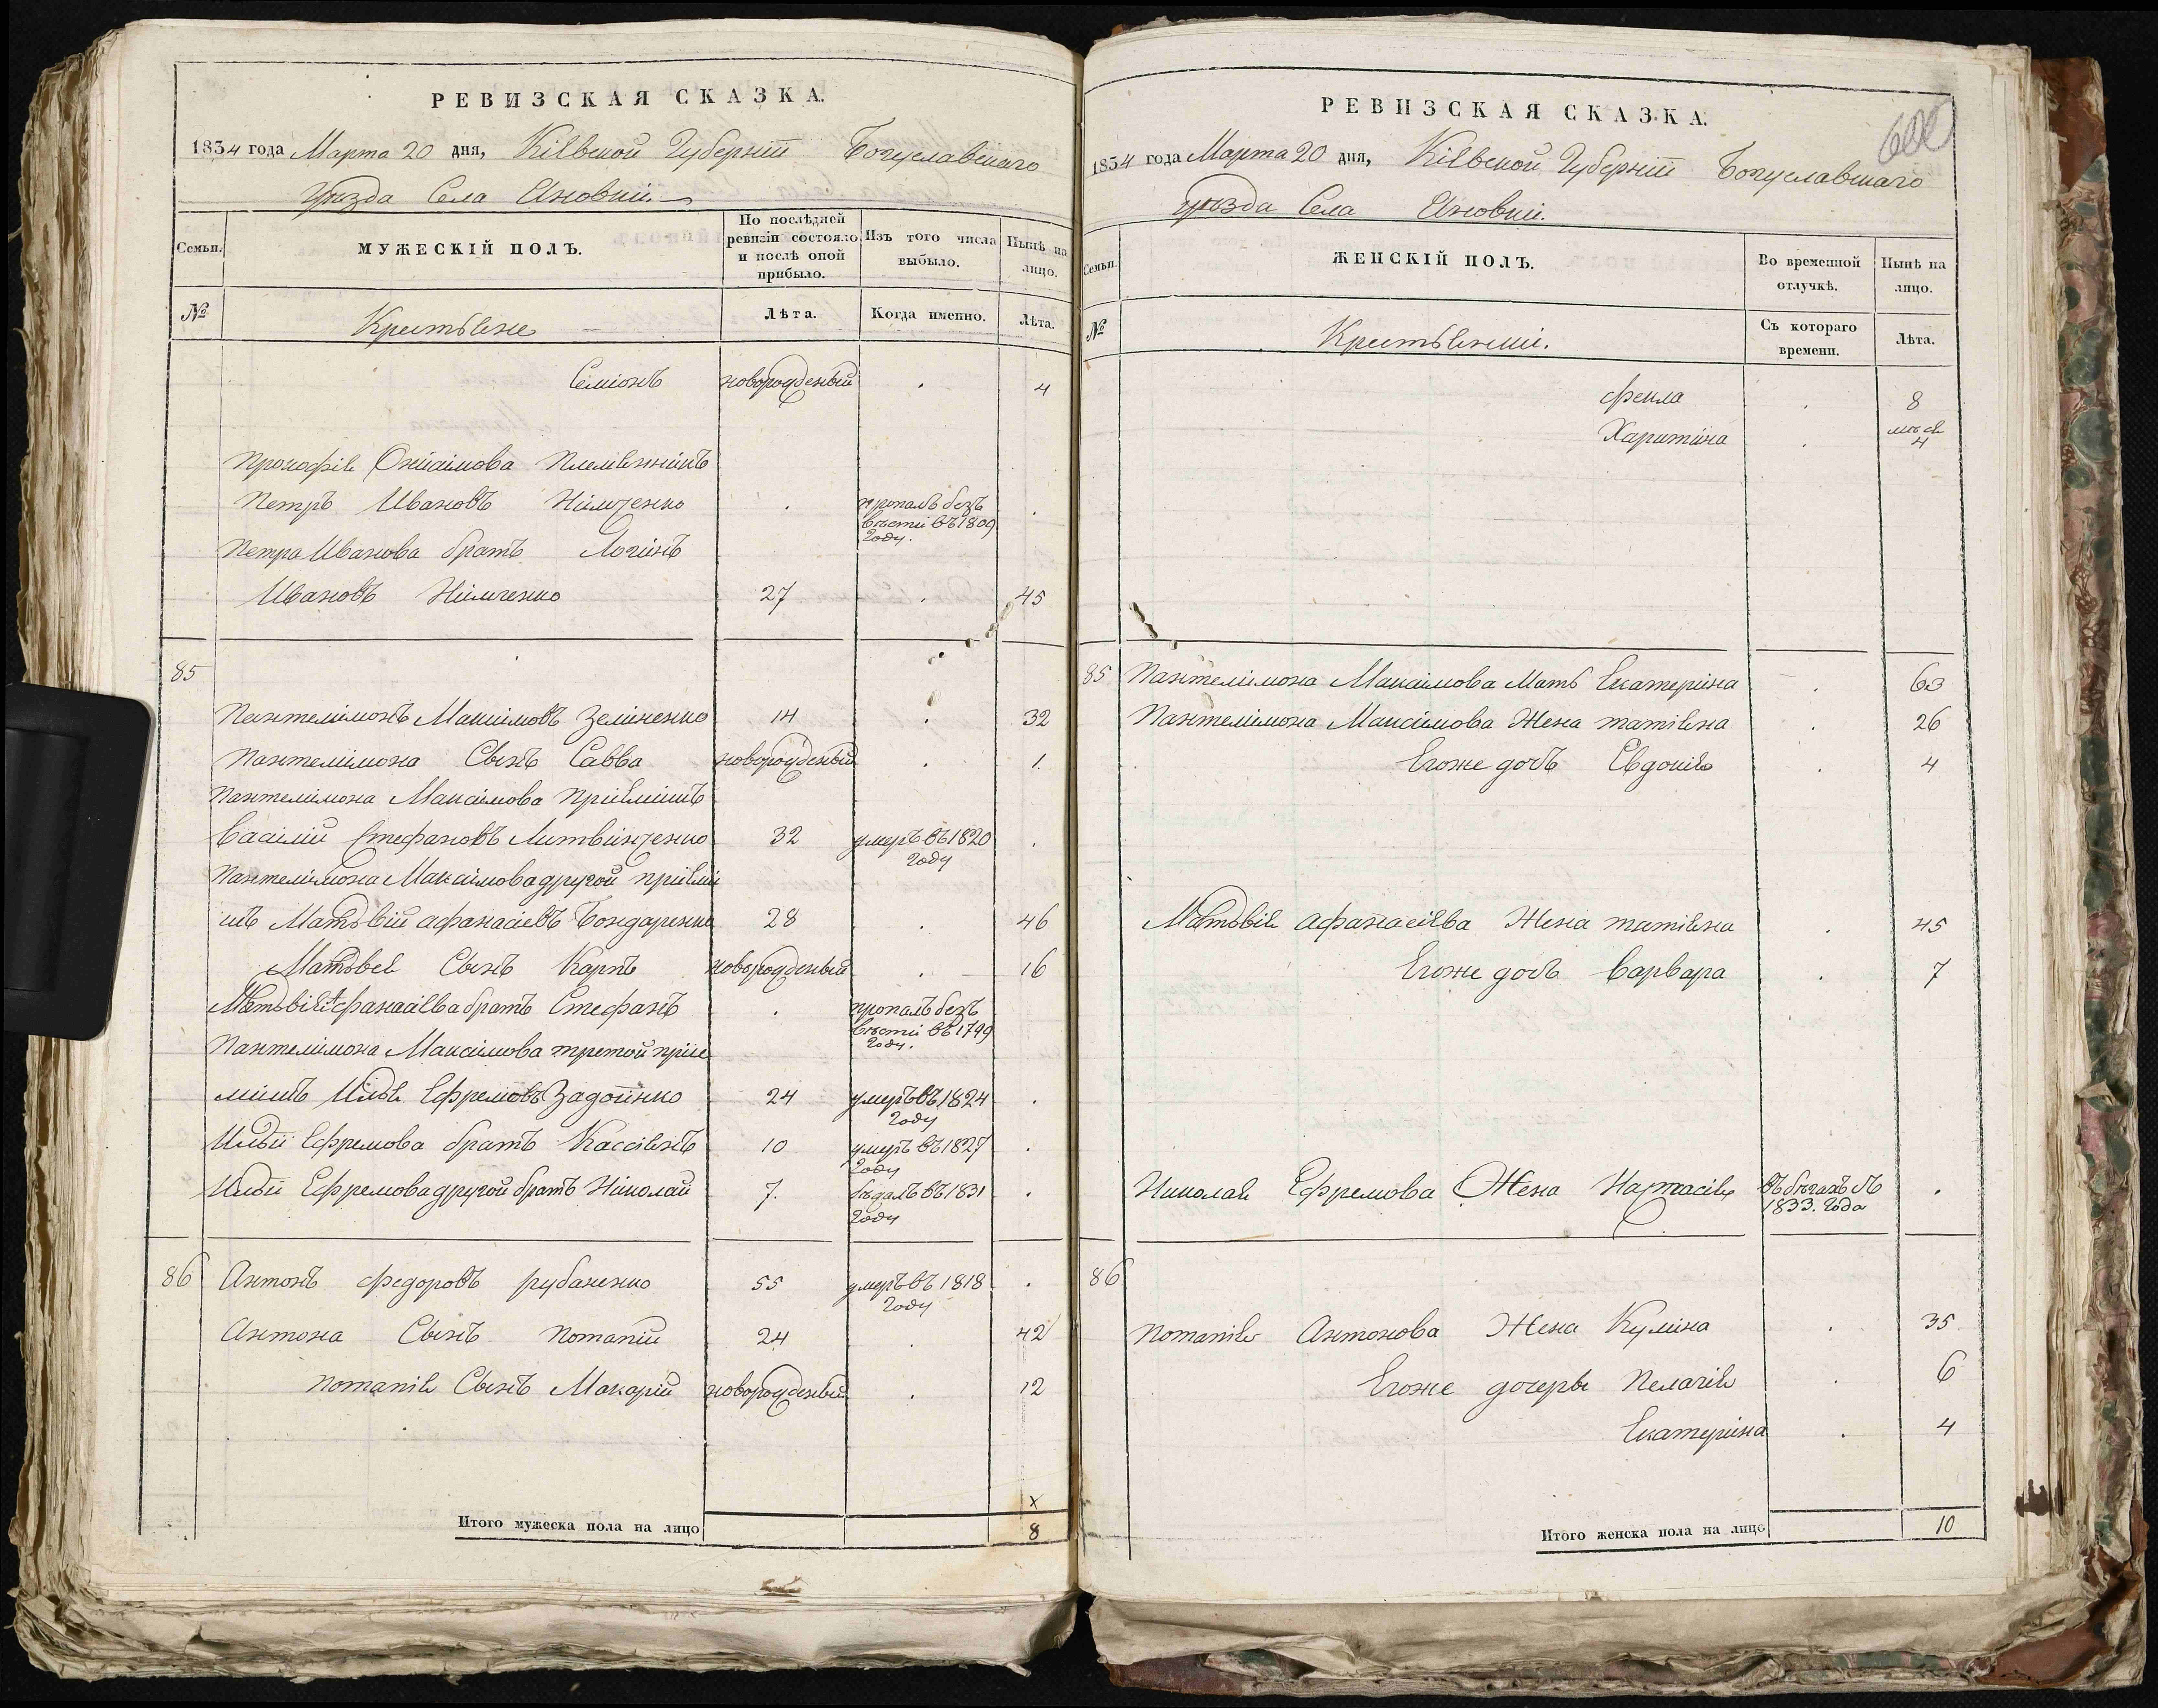 РЕВИЗСКАЯ СКАЗКА.
1834 года Марта 20 дня, Кіевской Губерніи Богуславскаго
уѣзда Села Яновки
Семьи.
МУЖЕСКІЙ ПОЛЪ.
По послѣдней ревизіи состояло и послѣ оной прибыло.
Изъ того числа выбыло.
Нынѣ на лицо.
№
Крестьяне
Лѣта.
Когда именно.
Лѣта.
Семіонъ новорожденый . 4
Прокофія Онисимова Племянникъ
Петръ Ивановъ Нимченко . пропалъ безъ вѣсти въ 1809 году. .
Петра Иванова братъ Логинъ
Ивановъ Нимченко 27 . 45
85
Пантелимонъ Максимовъ Зелиненко 14 . 32
Пантелимона Сынъ Савва новорожденый . 1.
Пантелимона Максимова Пріимикъ
Василій Стефановъ Литвинченко 32 умеръ въ 1820 году .
Пантелимона Максимова другой пріими
къ Матвѣй Афанасіевъ Бондаренко 28 . 46
Матвѣя Сынъ Карпъ новорожденый . 16
Матвѣя Афанасіева братъ Стефанъ . пропалъ безъ вѣсти въ 1799 году.
Пантелимона Максимова третой пріи
микъ Илья Ефремовъ Задойнко 24 умеръ въ 1824 году .
Ильи Ефремова братъ Кассіянъ 10 умеръ въ 1827 году .
Ильи Ефремова другой братъ Николай 7. бѣжалъ въ 1831 году .
86 Антонъ Федоровъ Рубаненко 55 умеръ въ 1818 году .
Антона Сынъ Потапій 24 . 42
Потапія Сынъ Макарій новорожденый . 12
х
Итого мужеска пола на лицо 8
РЕВИЗСКАЯ СКАЗКА.
1834 года Марта 20 дня, Кіевской Губерніи Богуславскаго
уѣзда Села Яновки.
Семьи.
ЖЕНСКІЙ ПОЛЪ.
Во временной отлучкѣ.
Нынѣ на лицо.
№
Крестьянки.
Съ котораго времени.
Лѣта.
Фекла . 8
Харитина . мѣся 4
85 Пантелимона Максимова Мать Екатерина . 63
Пантелимона Максимова Жена Татіяна . 26
Егоже дочь Евдокія . 4
Матвѣя Афанасіева Жена Татіяна . 45
Егоже дочь Варвара . 7
Николая Ефремова Жена Настасія въ бѣгахъ съ 1833. года .
86
Потапія Антонова Жена Кулина . 35
Егоже дочеры Пелагія . 6
Екатерина . 4
Итого женска пола на лицо 10